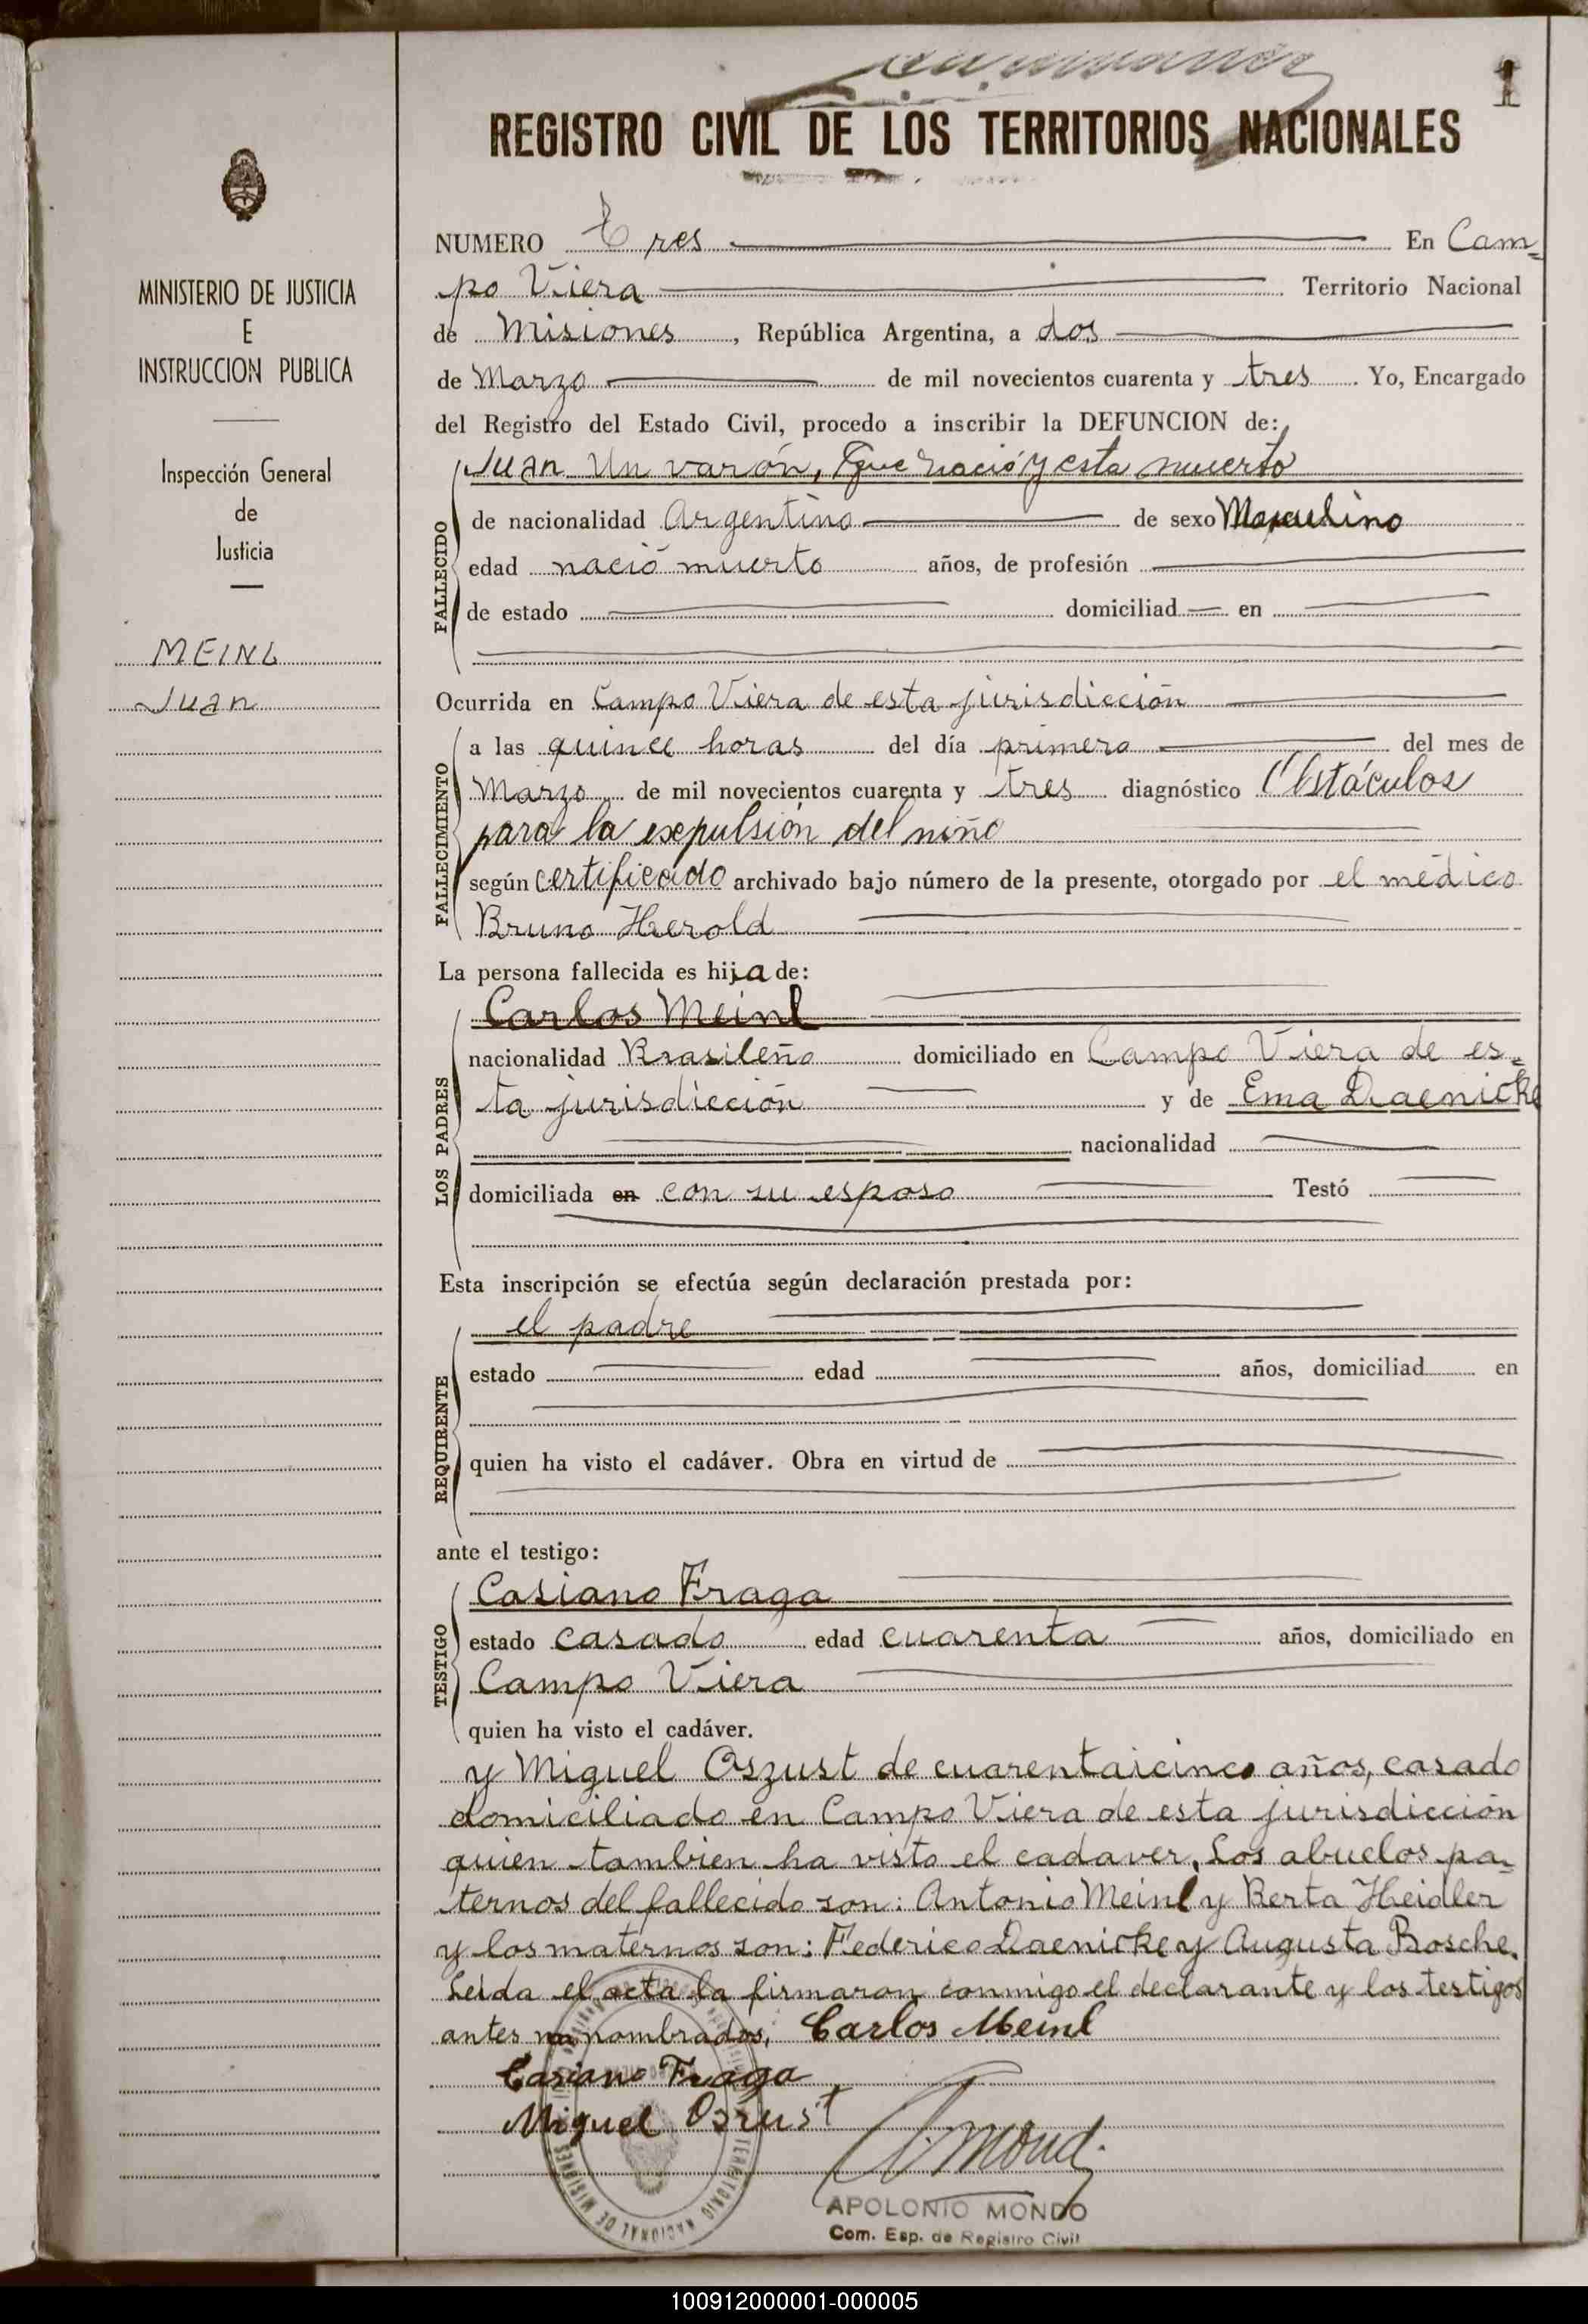 1
REGISTRO CIVIL DE LOS TERRITORIOS NACIONALES
MINISTERIO DE JUSTICIA
E
INSTRUCCION PUBLICA
Inspección General
de
Justicia
MEINL
Juan
NUMERO Tres En Cam=
po Viera Territorio Nacional
de Misiones, República Argentina, a dos
de Marzo de mil novecientos cuarenta y tres. Yo, Encargado
del Registro del Estado Civil, procedo a inscribir la DEFUNCION de:
Juan Un varón, que nació y esta muerto
FALLECIDO
de nacionalidad Argentina de sexo Masculino
edad nació muerto años, de profesión
de estado domiciliad en
Ocurrida en Campo Viera de esta jurisdicción
FALLECIMIENTO
a las quince horas del día primero del mes de
Marzo de mil novecientos cuarenta y tres diagnóstico Obstáculos
para la exepulsión del niño
según certificado archivado bajo número de la presente, otorgado por el médico
Bruno Herold
La persona fallecida es hija de:
LOS PADRES
Carlos Meinl
nacionalidad Brasileño domiciliado en Campo Viera de es=
ta jurisdicción y de Ema Daenicke
nacionalidad
domiciliada en con su esposo Testó
Esta inscripción se efectúa según declaración prestada por:
REQUIRENTE
el padre
estado edad años, domiciliad en
quien ha visto el cadáver. Obra en virtud de
ante el testigo:
TESTIGO
Casiano Fraga
estado casado edad cuarenta años, domiciliado en
Campo Viera
quien ha visto el cadáver.
y Miguel Oszust de cuarentaicinco años, casado
domiciliado en Campo Viera de esta jurisdicción
quien tambien ha visto el cadaver. Los abuelos pa=
ternos del fallecido son: Antonio Meinl y Berta Heidler
y los maternos son: Federico Daenicke y Augusta Bosche.
Leida el acta la firmaron conmigo el declarante y los testigos
antes nombrados; Carlos Meinl
Casiano Fraga
Miguel Oszust
TERRITORIO NACIONAL DE MISIONES
APOLONIO MONDO
Com. Esp. de Registro Civil
100912000001-000005